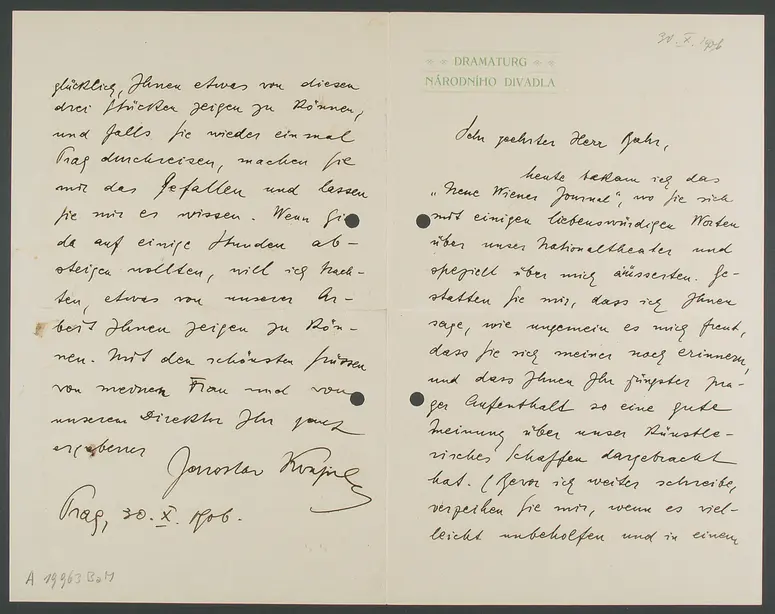 30. X. 1906
DRAMATURG
NÁRODNÍHO DIVADLA
Sehr geehrter Herr Bahr,
heute bekam ich das
„Neue Wiener Journal", wo Sie sich
mit einigen liebenswürdigen Worten
über unser Nationaltheater und
speziell über mich äusserten. Ge-
statten Sie mir, dass ich Ihnen
sage, wie ungemein es mich freut,
dass Sie sich meiner noch erinnern,
und dass Ihnen Ihr jüngster Pra-
ger Aufenthalt so eine gute
Meinung über unser Künstle-
risches Schaffen dargebracht
hat. (Bevor ich weiter schreibe,
verzeihen Sie mir, wenn es viel-
leicht unbeholfen und in einem
glücklich, Ihnen etwas von diesen
drei Stücken zeigen zu können,
und falls Sie wieder einmal
Prag durchreisen, machen Sie
mir das Gefallen und lassen
Sie mir es wissen. Wenn Sie
da auf einige Stunden ab-
steigen wollten, will ich trach-
ten, etwas von unserer Ar-
beit Ihnen zeigen zu kön-
nen. Mit den schönsten Grüssen
von meiner Frau und von
unserem Direktor Ihr ganz
ergebener
Jaroslav Kvapil
Prag, 30. X. 1906.
A 19963 BaM